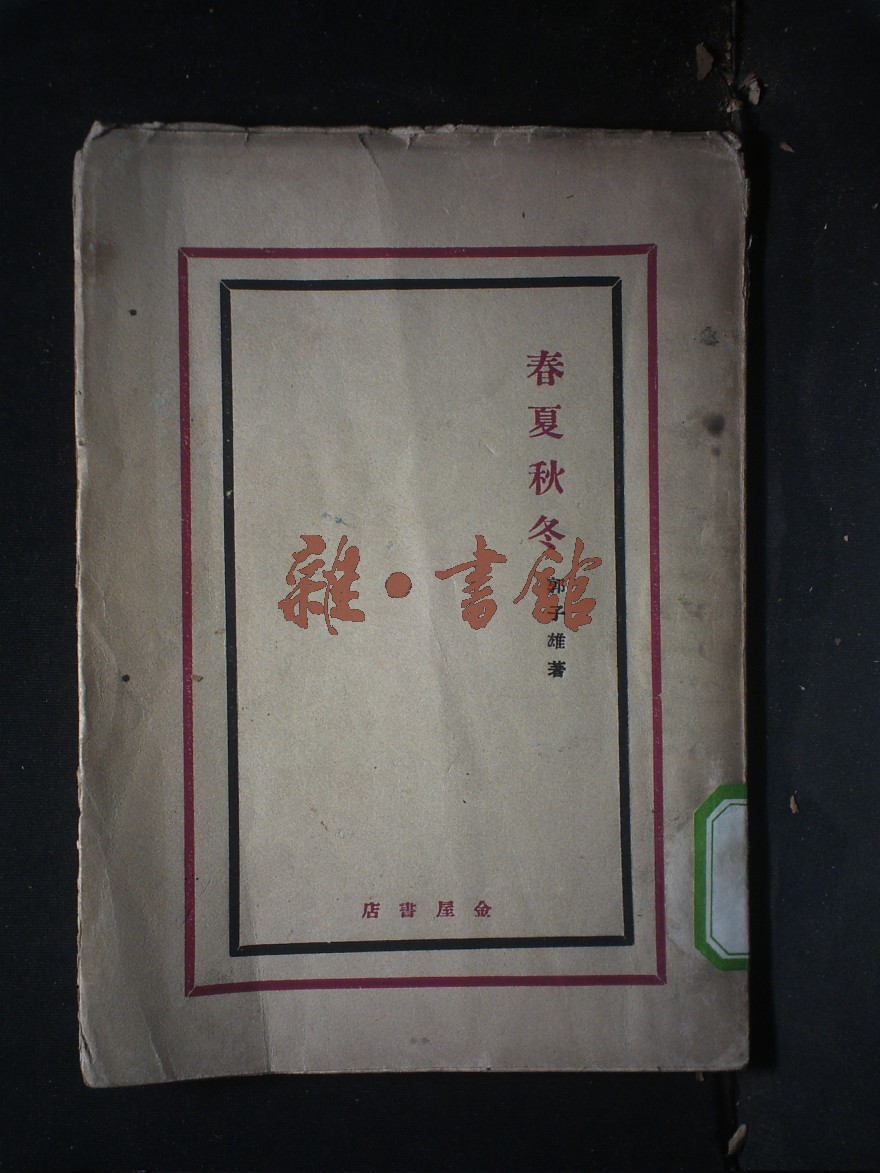 春夏秋冬
郭子雄著
雜·書館
店書屋金